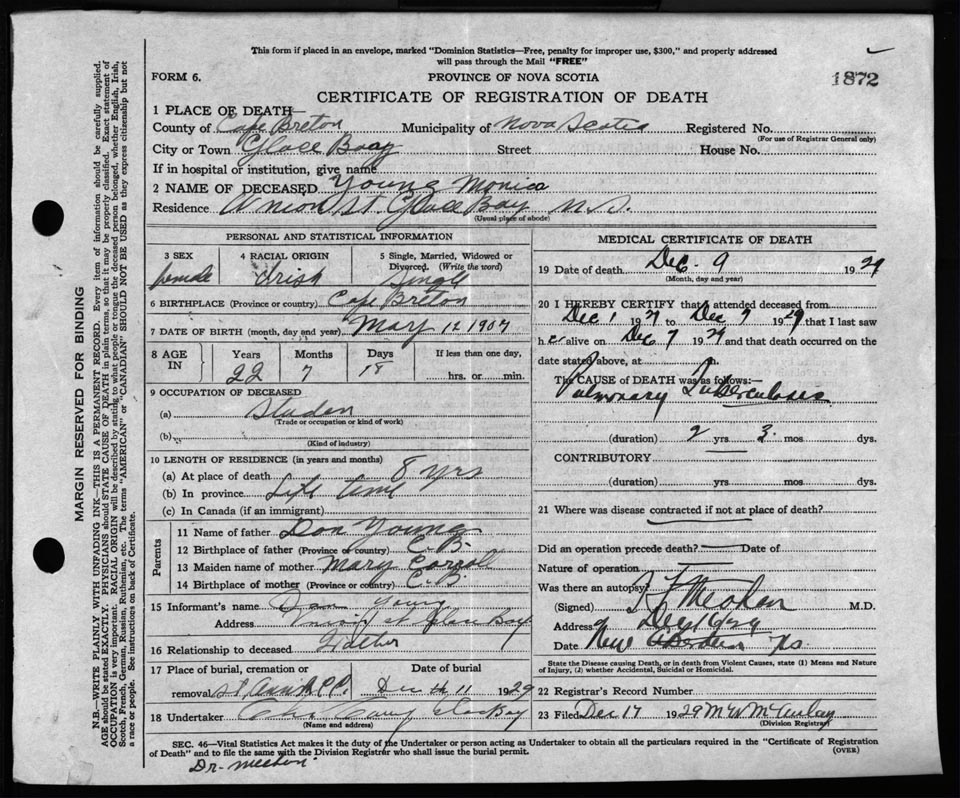 This form if placed in an envelope, marked "Dominion Statistics—Free, penalty for improper use, $300," and properly addressed
will pass through the Mail "FREE"
FORM 6.
PROVINCE OF NOVA SCOTIA
1872
CERTIFICATE OF REGISTRATION OF DEATH
1 PLACE OF DEATH—
County of Cape Breton Municipality of Nova Scotia Registered No.
(For use of Registrar General only)
City or Town Glace Bay Street House No.
If in hospital or institution, give name
2 NAME OF DECEASED Young Monica
Residence Union St Glace Bay N.S.
(Usual place of abode)
PERSONAL AND STATISTICAL INFORMATION
3 SEX 4 RACIAL ORIGIN 5 Single, Married, Widowed or
Divorced. (Write the word)
female Irish Single
6 BIRTHPLACE (Province or country) Cape Breton
7 DATE OF BIRTH (month, day and year) May 12 1907
8 AGE IN Years Months Days If less than one day,
22 7 18 hrs. or min.
9 OCCUPATION OF DECEASED
(a)
(Trade or occupation or kind of work)
(b)
(Kind of industry)
10 LENGTH OF RESIDENCE (in years and months)
(a) At place of death 8 yrs
(b) In province Life time
(c) In Canada (if an immigrant)
Parents
11 Name of father Dan Young
12 Birthplace of father (Province or country) C.B.
13 Maiden name of mother Mary
14 Birthplace of mother (Province or country) C.B.
15 Informant's name Dan Young
Address Union St Glace Bay
16 Relationship to deceased Father
17 Place of burial, cremation or removal St Anns Date of burial Dec 11 1929
18 Undertaker Glace Bay
(Name and address)
MEDICAL CERTIFICATE OF DEATH
19 Date of death Dec. 9 1929
(Month, day and year)
20 I HEREBY CERTIFY that I attended deceased from
Dec 1 1929 to Dec 9 1929 that I last saw
her alive on Dec 7 1929 and that death occurred on the
date stated above, at m.
The CAUSE of DEATH was as follows:—
Pulmonary Tuberculosis
(duration) 2 yrs 3 mos dys.
CONTRIBUTORY
(duration) yrs. mos. dys.
21 Where was disease contracted if not at place of death?
Did an operation precede death? Date of
Nature of operation
Was there an autopsy?
(Signed) M.D.
Address
Date New Aberdeen NS
State the Disease causing Death, or in death from Violent Causes, state (1) Means and Nature
of Injury, (2) whether Accidental, Suicidal or Homicidal.
22 Registrar's Record Number
23 Filed Dec 17 1929
(Division Registrar)
SEC. 46—Vital Statistics Act makes it the duty of the Undertaker or person acting as Undertaker to obtain all the particulars required in the "Certificate of Registration
of Death" and to file the same with the Division Registrar who shall issue the burial permit.
(OVER)
MARGIN RESERVED FOR BINDING
N.B.—WRITE PLAINLY WITH UNFADING INK—THIS IS A PERMANENT RECORD. Every item of information should be carefully supplied.
AGE should be stated EXACTLY. PHYSICIANS should STATE CAUSE OF DEATH in plain terms, so that it may be properly classified. Exact statement of
OCCUPATION is very important. RACIAL ORIGIN will be described by stating to what people or tongue the deceased person belonged, whether English, Irish,
Scotch, French, German, Russian, Ruthenian, etc. The terms "AMERICAN" or "CANADIAN" SHOULD NOT BE USED as they express citizenship but not
a race or people. See instructions on back of Certificate.